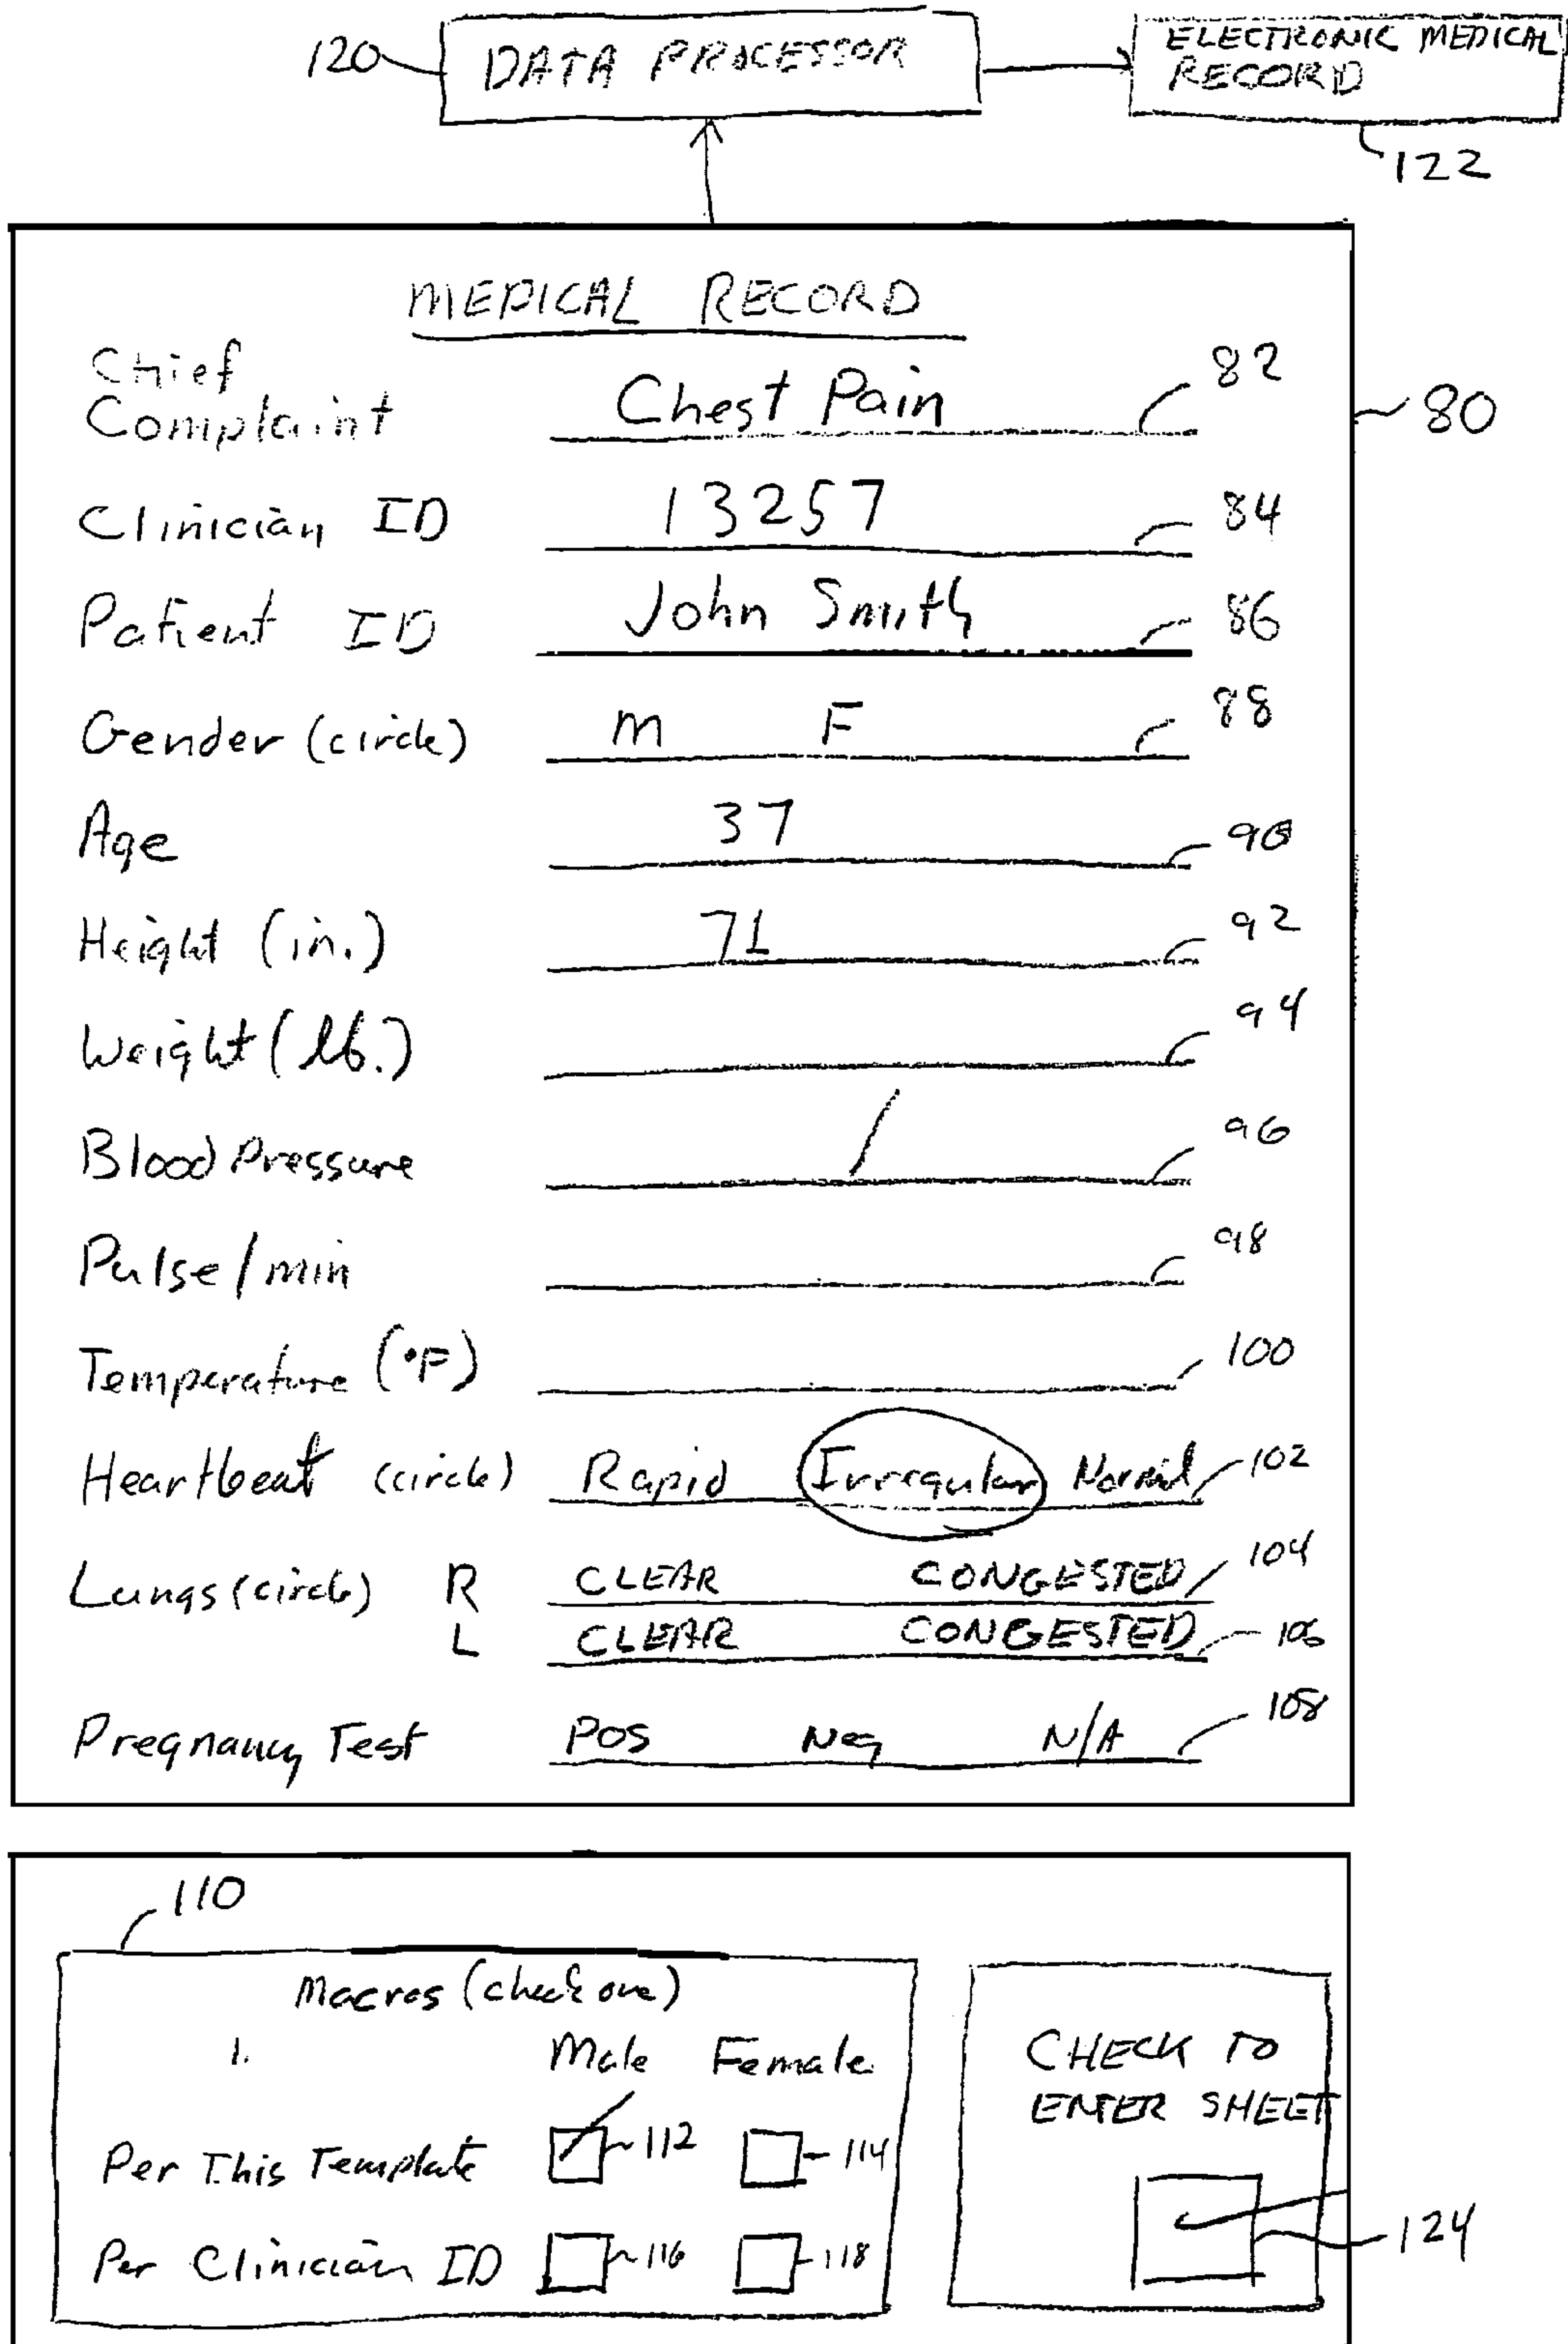 120 DATA PROCESSOR
ELECTRONIC MEDICAL
RECORD
122
MEDICAL RECORD
80
Chief
Complaint Chest Pain 82
Clinician ID 13257 84
Patient ID John Smith 86
Gender (circle) M F 88
Age 37 90
Height (in.) 71 92
Weight (lb.) 94
Blood Pressure / 96
Pulse/min 98
Temperature (°F) 100
Heartbeat (circle) Rapid Irregular Normal 102
Lungs (circle) R CLEAR CONGESTED 104
L CLEAR CONGESTED 106
Pregnancy Test POS Neg N/A 108
110
Macros (check one)
1. Male Female
Per This Template 112 114
Per Clinician ID 116 118
CHECK TO
ENTER SHEET
124